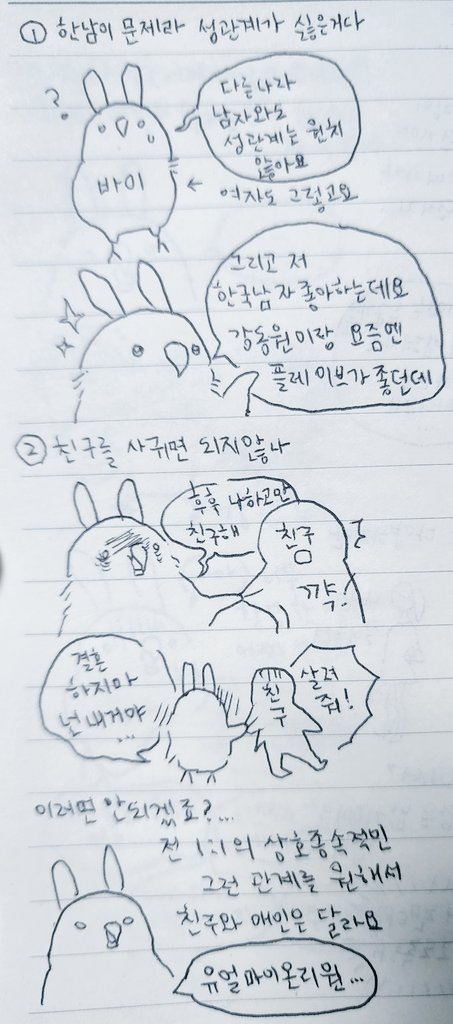 ① 한남이 문제라 성관계가 싫은거다
?
다른나라
남자와도
성관계는 원치
않아요
바이
← 여자도 그렇고요
그리고 저
한국남자 좋아하는데요
강동원이랑 요즘엔
플레이브가 좋던데
② 친구를 사귀면 되지않나
후후 나하고만
친구해
친구
꺅!
결혼
하지마
넌 내거야
...
친구
살려
줘!
이러면 안되겠죠?...
전 1:1의 상호종속적인
그런 관계를 원해서
친구와 애인은 달라요
유얼마이온리원...